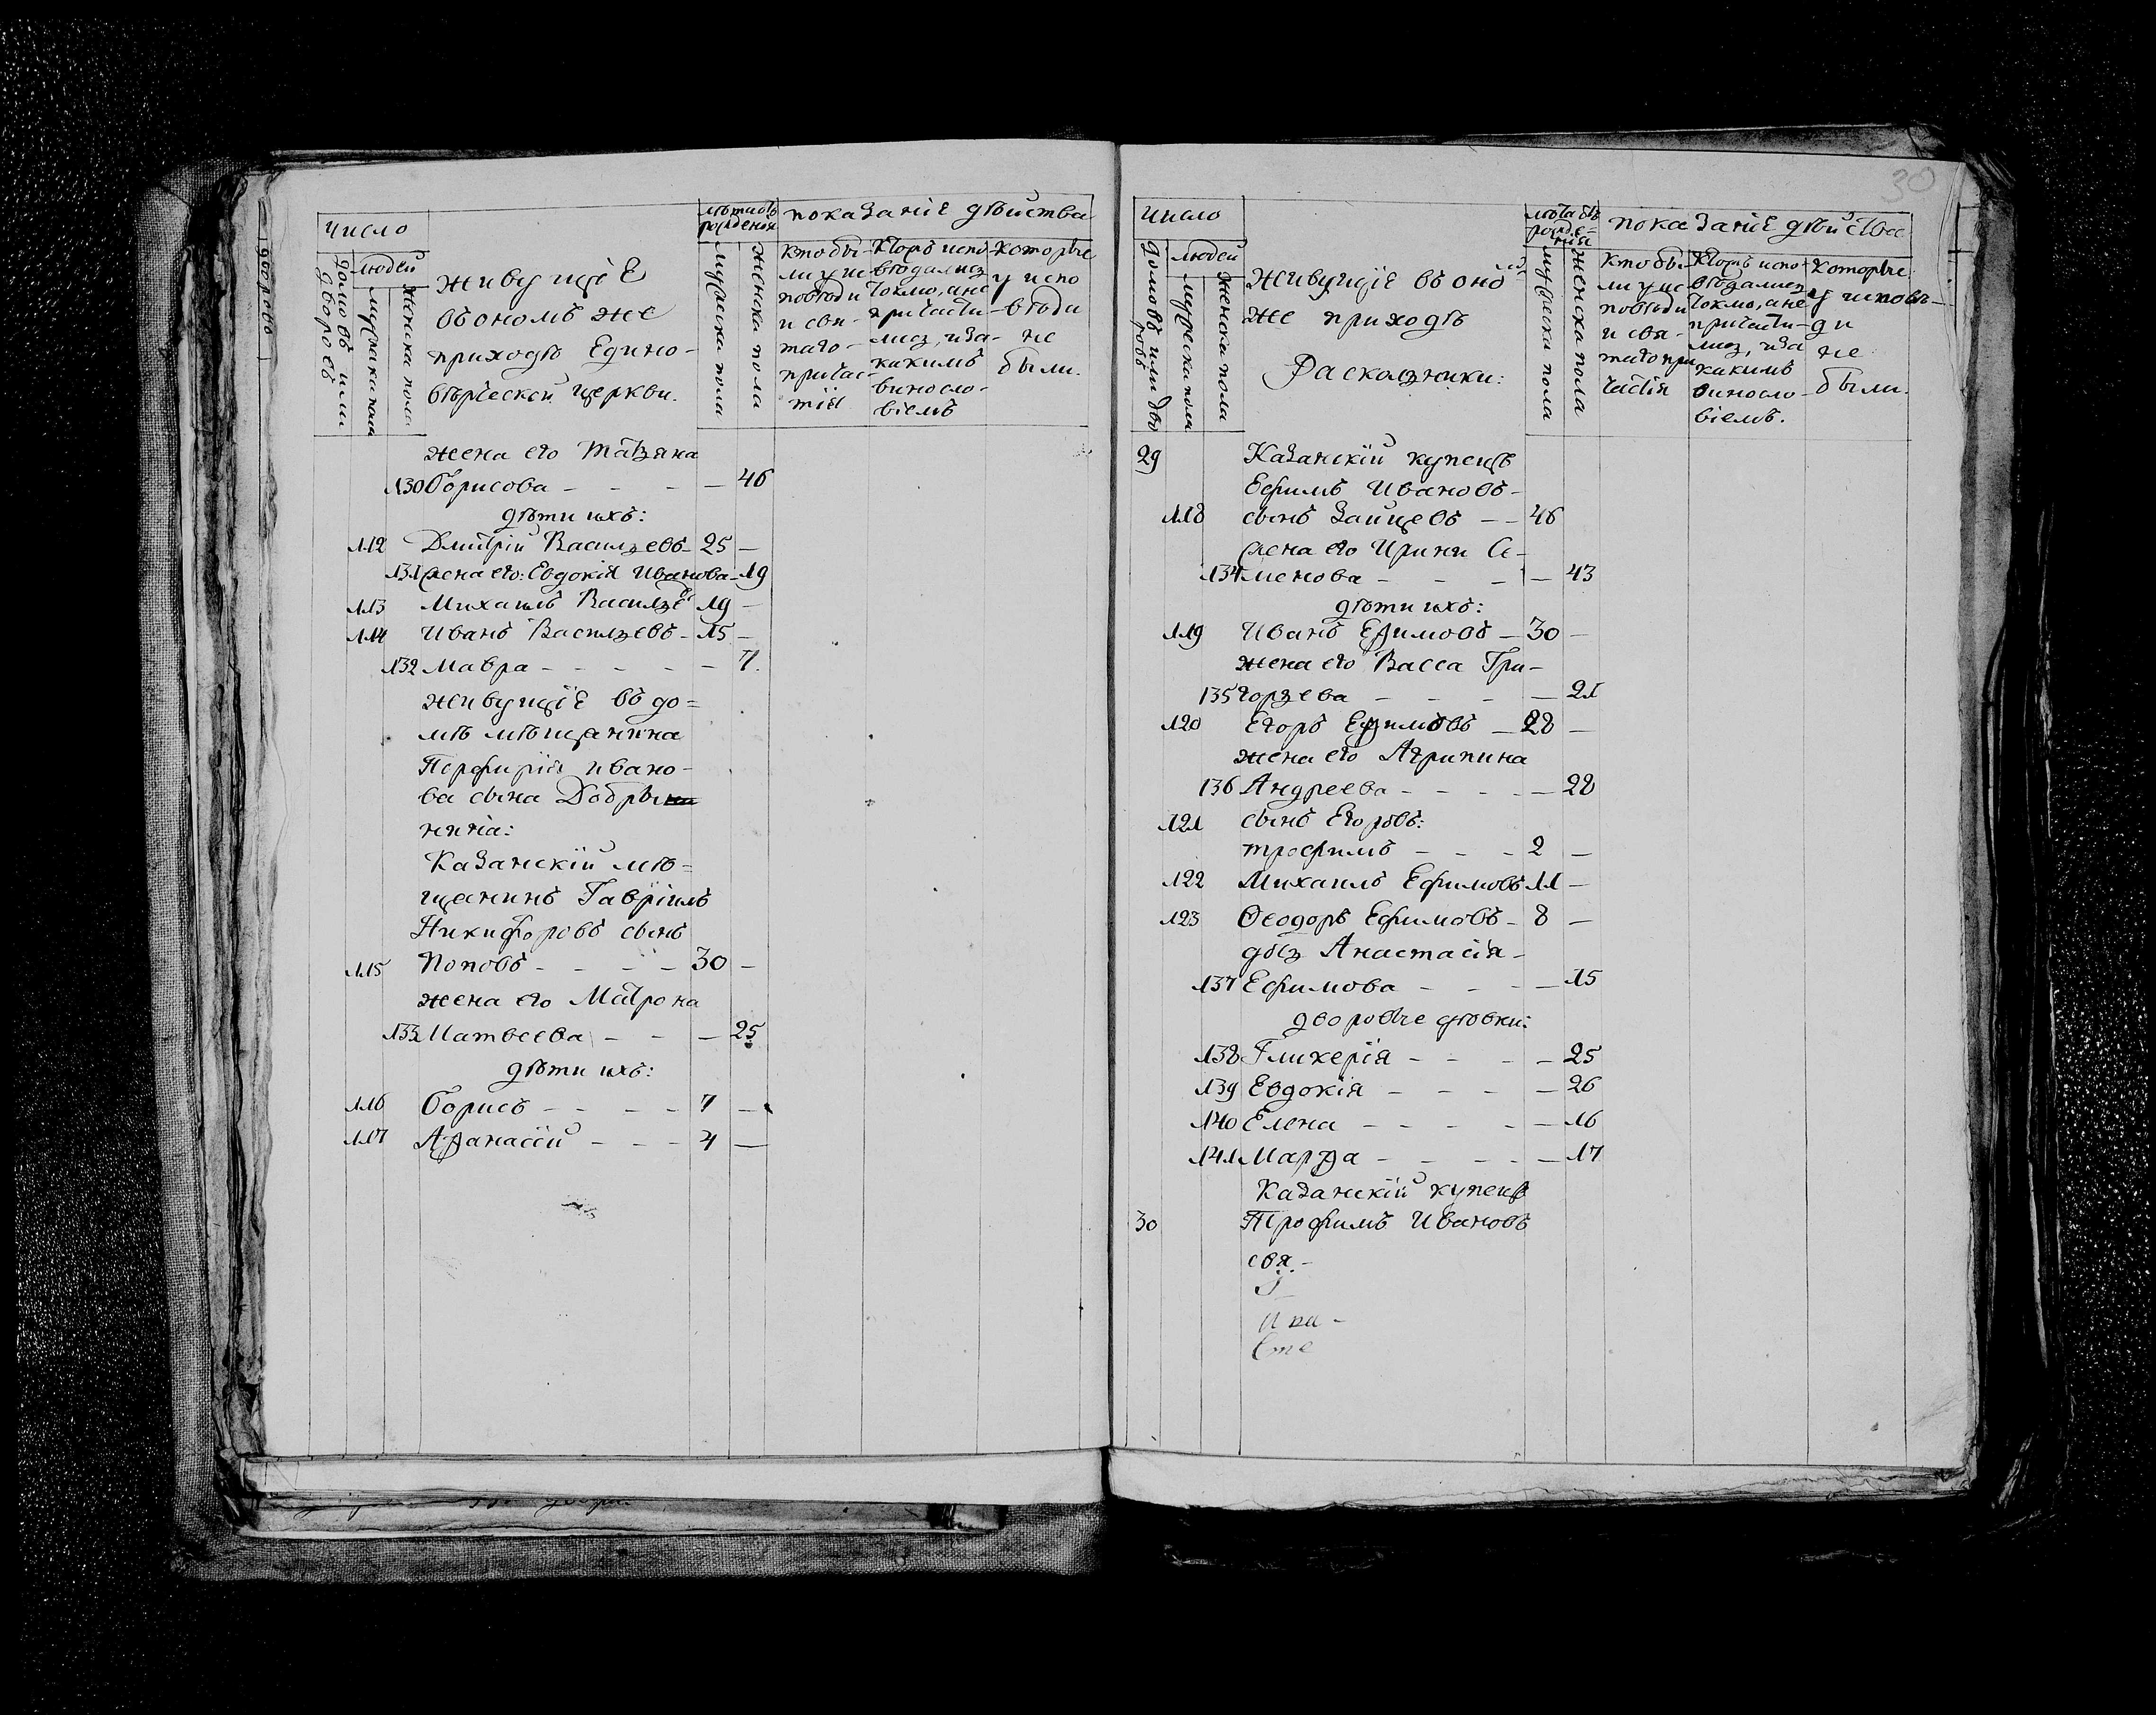 число
людей
домовъ или дворовъ
мужеска пола
женска пола
живущіе
въ ономъ же
приходѣ Едино-
вѣрческой церкви.
лѣта отъ рожденія
мужеска пола
женска пола
показаніе дѣйства
кто бы-
ли у ис
повѣди
и свя-
таго-
причас-
тія
кторѣ испо-
вѣдались
токмо, а не
причасти-
лись, и за
какимъ
винosло-
віемъ
которые
у испо
вѣди
не
были.
жена его Татьяна
130 Борисова - - - - 46
дѣти ихъ:
112 Дмитрій Васильевъ - 25 -
131 Жена его: Евдокія Иванова - 19
113 Михаилъ Васильевъ 19 -
114 Иванъ Васильевъ - 15 -
132 Мавра - - - - - 7.
живущіе въ до=
мѣ мѣщанина
Порфирія ивано-
ва сына Добры
нина:
Казанскій мѣ=
щанинъ Гавріилъ
Никифоровъ сынъ
115 Поповъ - - - - 30 -
жена его Матрона
133 Матвеева - - - 25
дѣти ихъ:
116 Борисъ - - - - 7 -
117 Афанасій - - - 4 -
30
число
людей
домовъ или дворовъ
мужеска пола
женска пола
Живущіе въ оно
же приходѣ
Раскольники:
лѣта отъ рожде=нія
мужеска пола
женска пола
показаніе дѣйства
кто бы-
ли у ис
повѣди
и свя-
таго при
частія
кторѣ испо-
вѣдались
токмо, а не
причасти-
лись, и за
какимъ
винosло-
віемъ.
которые
у исповѣ-
ди
не
были.
29 Казанскій купецъ
Ефимъ Ивановъ-
118 сынъ Зайцевъ - - 46
Жена его Ирина Се-
134 менова - - - - 43
дѣти ихъ:
119 Иванъ Ефимовъ - 30 -
жена его Васса Гри-
135 горьева - - - - 21
120 Егоръ Ефимовъ - 28 -
жена его Агрипина
136 Андреева - - - - - 22
121 сынъ Егоровъ:
трофимъ - - - 2 -
122 Михаилъ Ефимовъ 11 -
123 Ѳеодоръ Ефимовъ - 8 -
дочь Анастасія -
137 Ефимова - - - - 15
дворовые дѣвки:
138 Гликерія - - - - 25
139 Евдокія - - - - 26
140 Елена - - - - - 16
141 Марфа - - - - - 17
Казанскій купецъ
30 Трофимъ Ивановъ
свя-